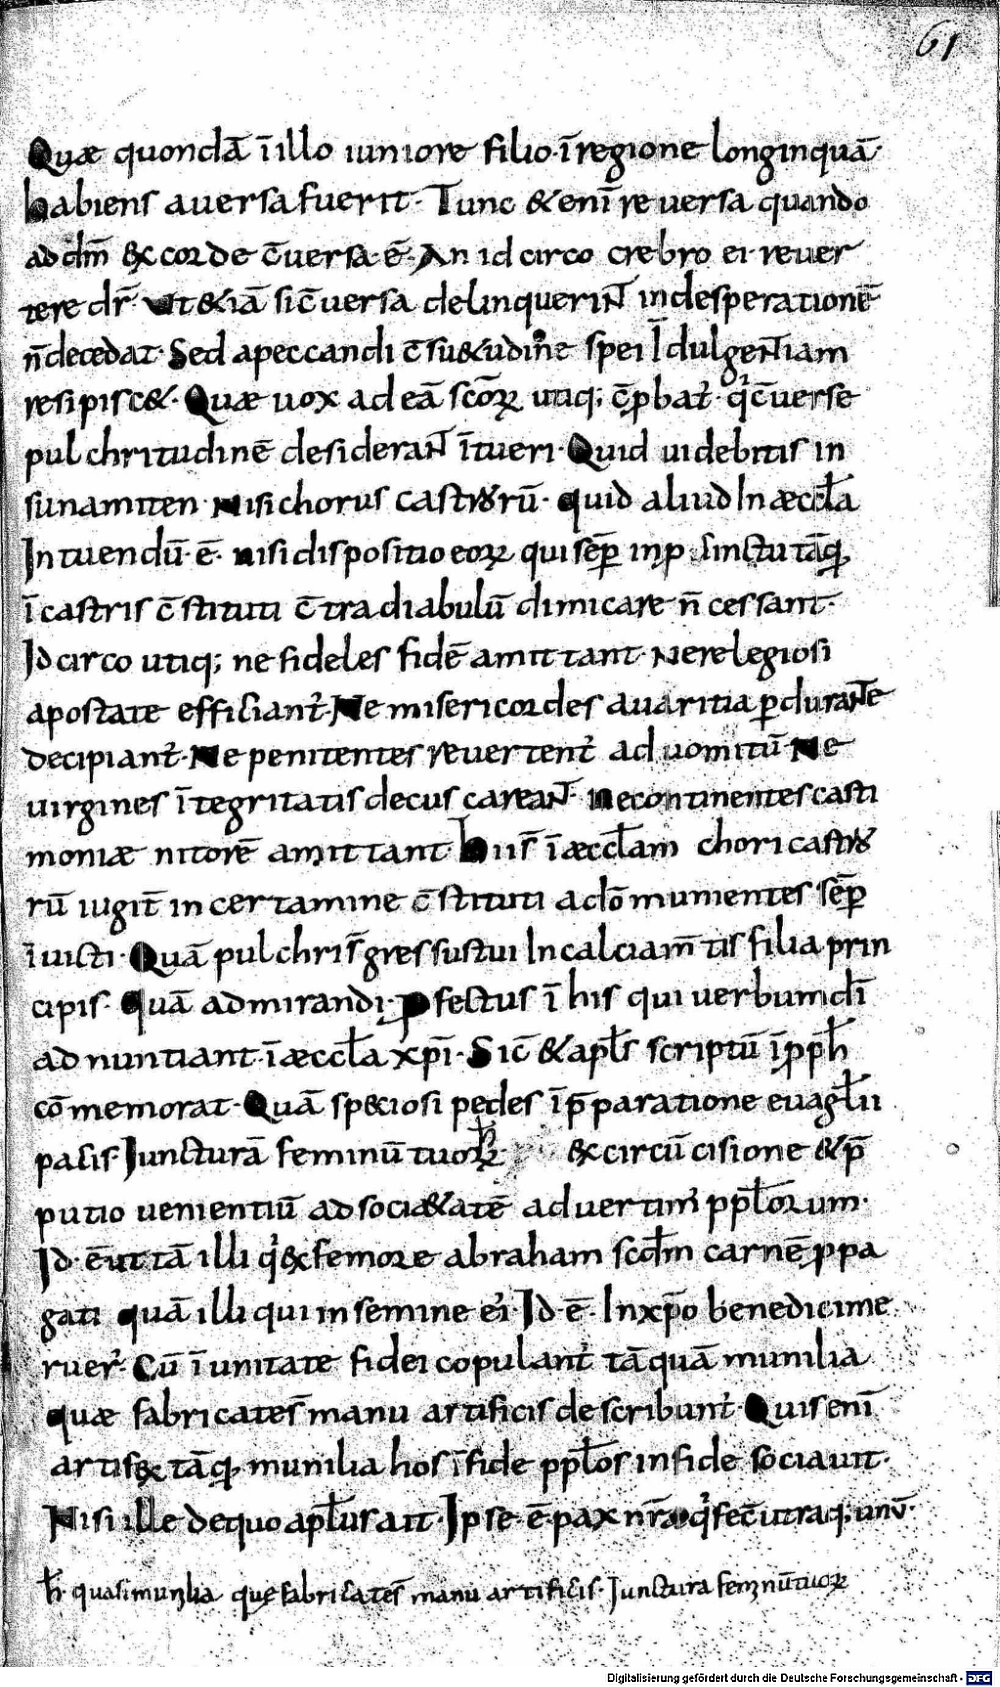 61
Quæ quondā ī illo iuniore filio· ī regione longinquā·
habiens auersa fuerit· Tunc &enī reuersa quando
ad dm̄ ex corde c̄uersa· ē· An idcirco crebro ei reuer
tere dr̄· Ut &iā si c̄uersa delinquerint in desperationē
n̄ decedat· Sed a peccandi c̄su&udine spei Indulgentiam
resipisc&· Quæ uox ad eā sc̄oꝝ utiq; c̄ꝓbat᷒· q᷒ c̄uerse
pulchritudinē desiderant ītueri· Quid uidebitis in
sunamiten· Nisi chorus castrorū· quid aliud In æccl̄a
Intuendū· ē· nisi dispositio eoꝝ qui sēꝑ in
ī castris c̄stituti c̄tra diabulū dimicare n̄ cessant·
Idcirco utiq; ne fideles fidē amittant· Ne relegiosi
apostate efficiant᷒· Ne misericordes auaritia ꝑdurante
decipiant᷒· Ne penitentes reuertent᷒ ad uomitū· Ne
uirgines ītegritatis decus careant· Ne continentes casti
moniæ nitorē amittant· huis̄ ī æccl̄am chori castro
rū iugit̄ in certamine c̄stituti ad om̄unientes sēꝑ
īuicti· Quā pulchri s̄ gressus tui In calciam̄tis filia prin
cipis· Quā admirandi· ꝓfectus ī his qui uerbum dī
adnuntiant· ī æccl̄a xp̄i· Sic̄ & apl̄s scriptū ī ꝓph̄
cōmemorat· Quā speciosi pedes ī p̄paratione euagl̄ii
pacis· Iuncturā feminū tuoꝝ h̄ ex circūcisione & p̄
putio uenientiū ad soci&atē aduertim᷒ ppl̄orum·
Id· ē· ut tā illi q᷒ ex femore abraham scd̄m carnē ꝓpa
gati quā illi qui in semine ei᷒· Id· ē· In xp̄o benedici me
ruer̄· Cū ī unitate fidei copulant᷒ tāquā munilia
quæ fabricates̄ manu artificis describunt᷒· Quis enī
artifex tāq̄ munilia hos ī fide ppl̄os in fide sociauit·
Nisi ille de quo apl̄us ait· Ipse· ē· pax nr̄a q᷒ fec̄ utraq; unū·
h̄· quasi munilia quę fabricates̄ manu artificis· Iunctura feminū tuoꝝ
Digitalisierung gefördert durch die Deutsche Forschungsgemeinschaft - DFG